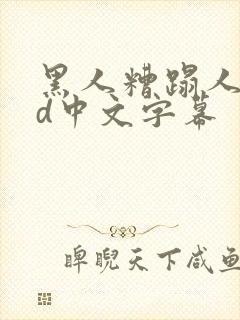 黑人糟蹋人
d中文字幕
睥睨天下咸鱼